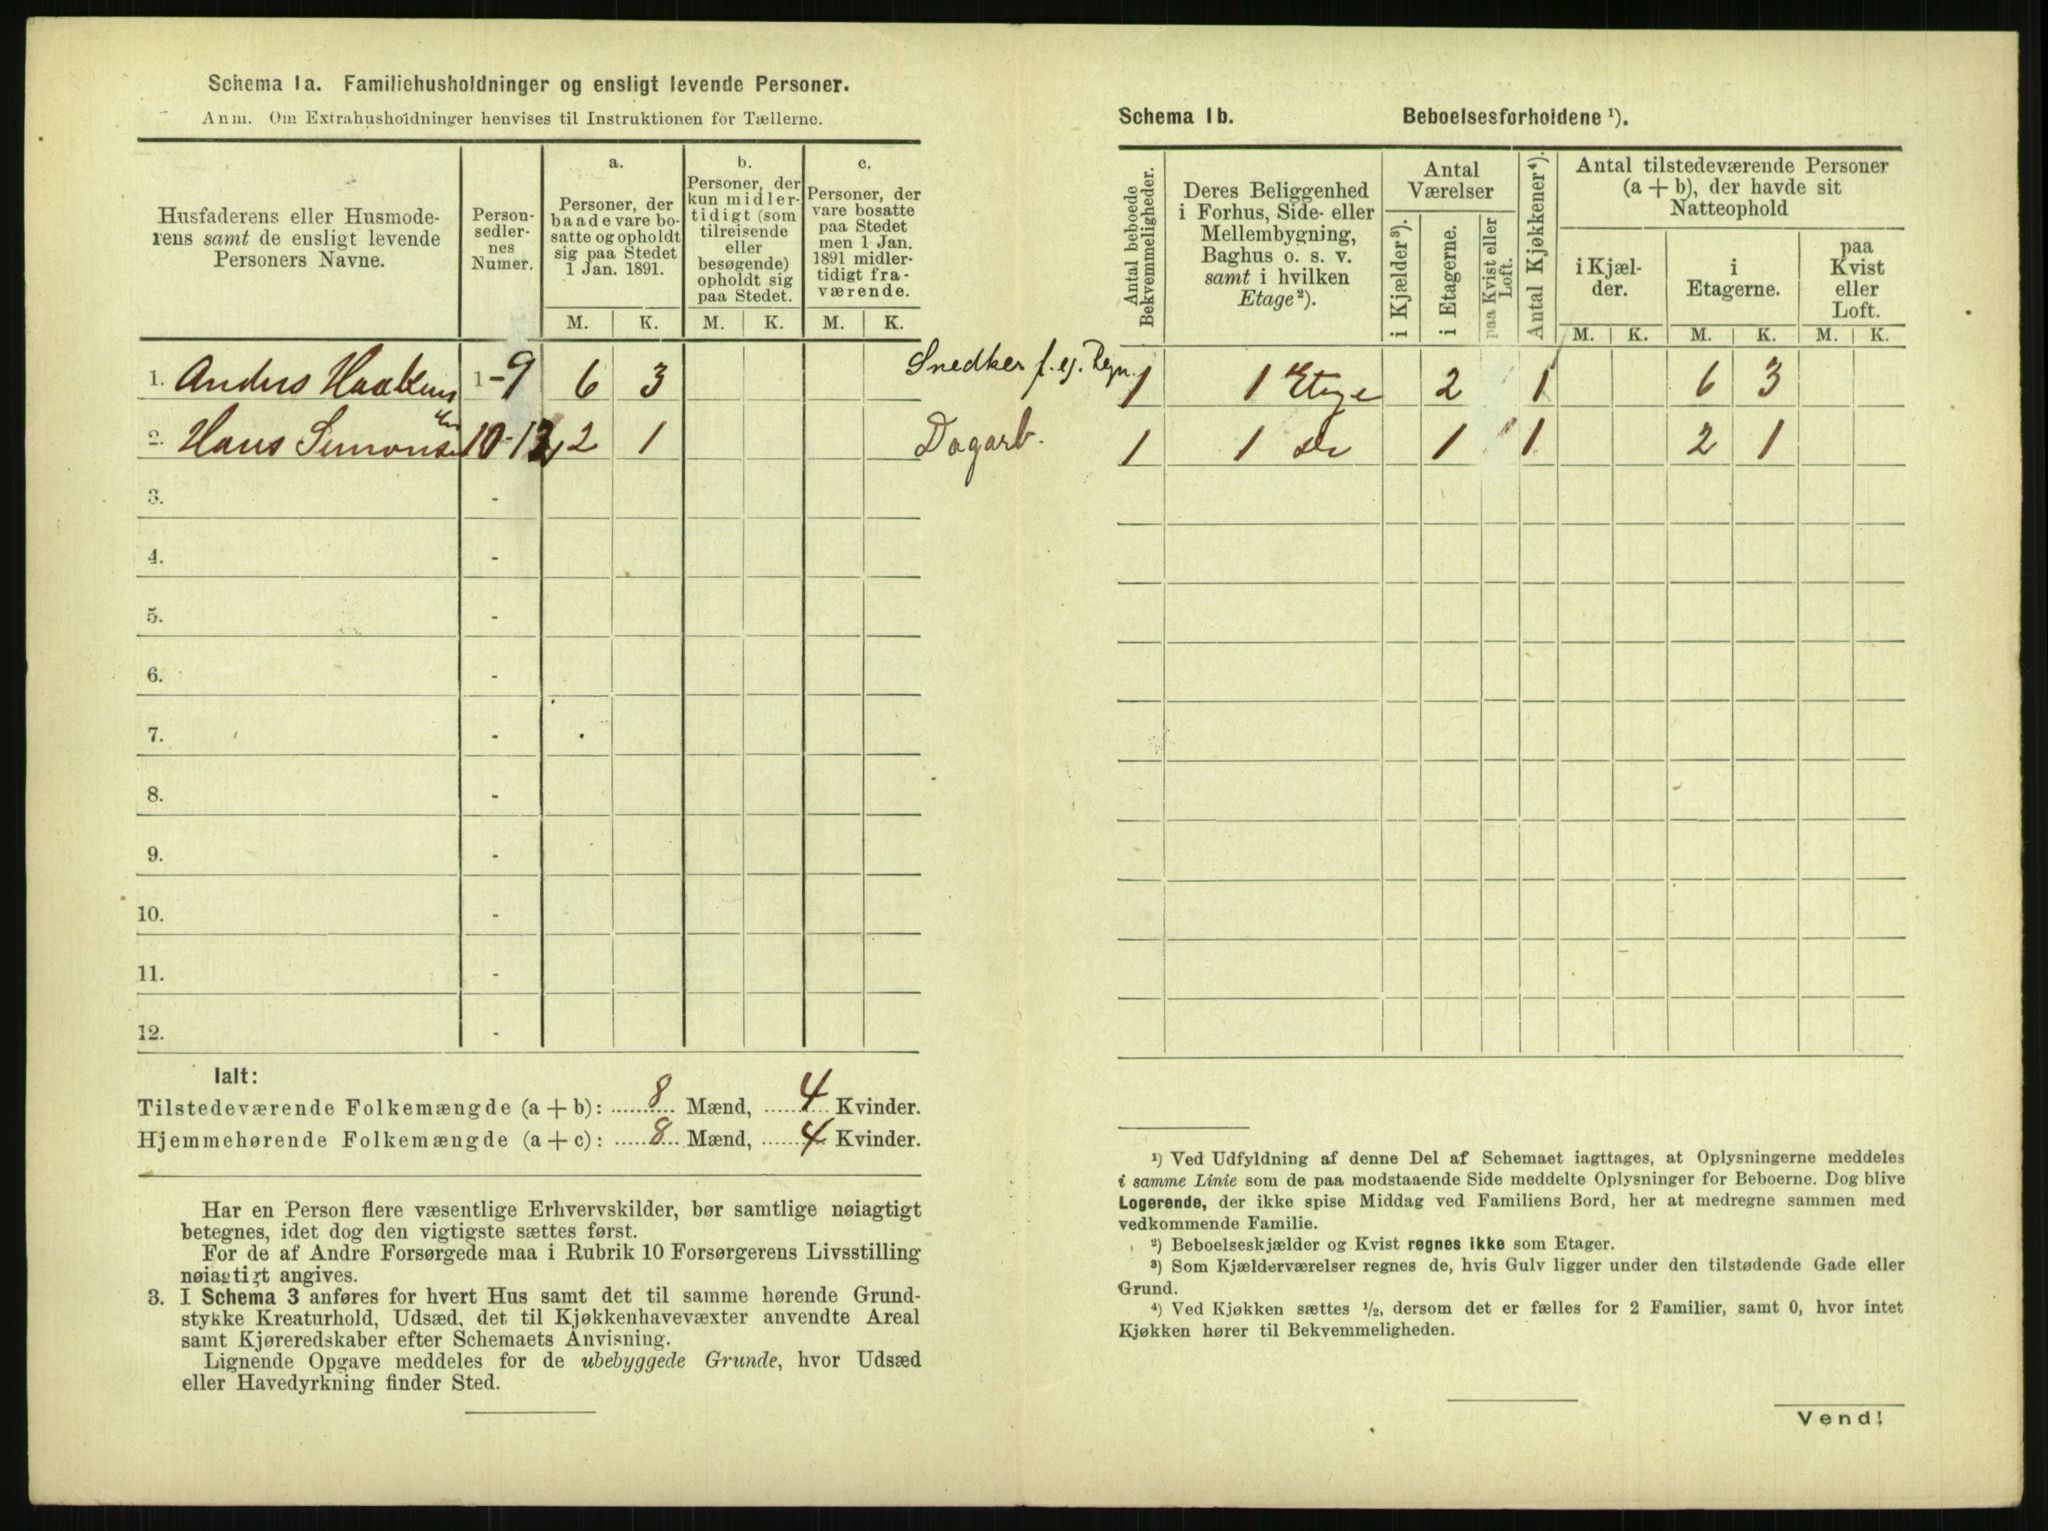 Schema 1a. Familiehusholdninger og ensligt levende Personer.
Anm. Om Extrahusholdninger henvises til Instruktionen for Tællerne.
Husfaderens eller Husmode-
rens samt de ensligt levende
Personers Navne.
Person-
sedler-
nes
Numer.
a.
Personer, der
baade vare bo-
satte og opholdt
sig paa Stedet
1 Jan. 1891.
b.
Personer, der
kun midler-
tidigt (som
tilreisende
eller
besøgende)
opholdt sig
paa Stedet.
c.
Personer, der
vare bosatte
paa Stedet
men 1 Jan.
1891 midler-
tidigt fra-
værende.
M. K. M. K. M. K.
1. Anders Haakens 1-9 6 3 Snedker f. eg. Regn.
2. Hans Simonsen 10-12 2 1 Dagarb.
3. -
4. -
5. -
6. -
7. -
8. -
9. -
10. -
11. -
12. -
Ialt:
Tilstedeværende Folkemængde (a + b): 8 Mænd, 4 Kvinder.
Hjemmehørende Folkemængde (a + c): 8 Mænd, 4 Kvinder.
Har en Person flere væsentlige Erhvervskilder, bør samtlige nøiagtigt
betegnes, idet dog den vigtigste sættes først.
For de af Andre Forsørgede maa i Rubrik 10 Forsørgerens Livsstilling
nøiagtigt angives.
3. I Schema 3 anføres for hvert Hus samt det til samme hørende Grund-
stykke Kreaturhold, Udsæd, det til Kjøkkenhavevæxter anvendte Areal
samt Kjøreredskaber efter Schemaets Anvisning.
Lignende Opgave meddeles for de ubebyggede Grunde, hvor Udsæd
eller Havedyrkning finder Sted.
Schema 1b. Beboelsesforholdene ¹).
Antal beboede
Bekvemmeligheder.
Deres Beliggenhed
i Forhus, Side- eller
Mellembygning,
Baghus o. s. v.
samt i hvilken
Etage ²).
Antal
Værelser
i Kjælder ³).
i Etagerne.
paa Kvist eller
Loft.
Antal Kjøkkener ⁴).
Antal tilstedeværende Personer
(a + b), der havde sit
Natteophold
i Kjæl-
der.
i
Etagerne.
paa
Kvist
eller
Loft.
M. K. M. K. M. K.
1 1 Etage 2 1 6 3
1 1 Do 1 1 2 1
¹) Ved Udfyldning af denne Del af Schemaet iagttages, at Oplysningerne meddeles
i samme Linie som de paa modstaaende Side meddelte Oplysninger for Beboerne. Dog blive
Logerende, der ikke spise Middag ved Familiens Bord, her at medregne sammen med
vedkommende Familie.
²) Beboelseskjælder og Kvist regnes ikke som Etager.
³) Som Kjælderværelser regnes de, hvis Gulv ligger under den tilstødende Gade eller
Grund.
⁴) Ved Kjøkken sættes ½, dersom det er fælles for 2 Familier, samt 0, hvor intet
Kjøkken hører til Bekvemmeligheden.
Vend!